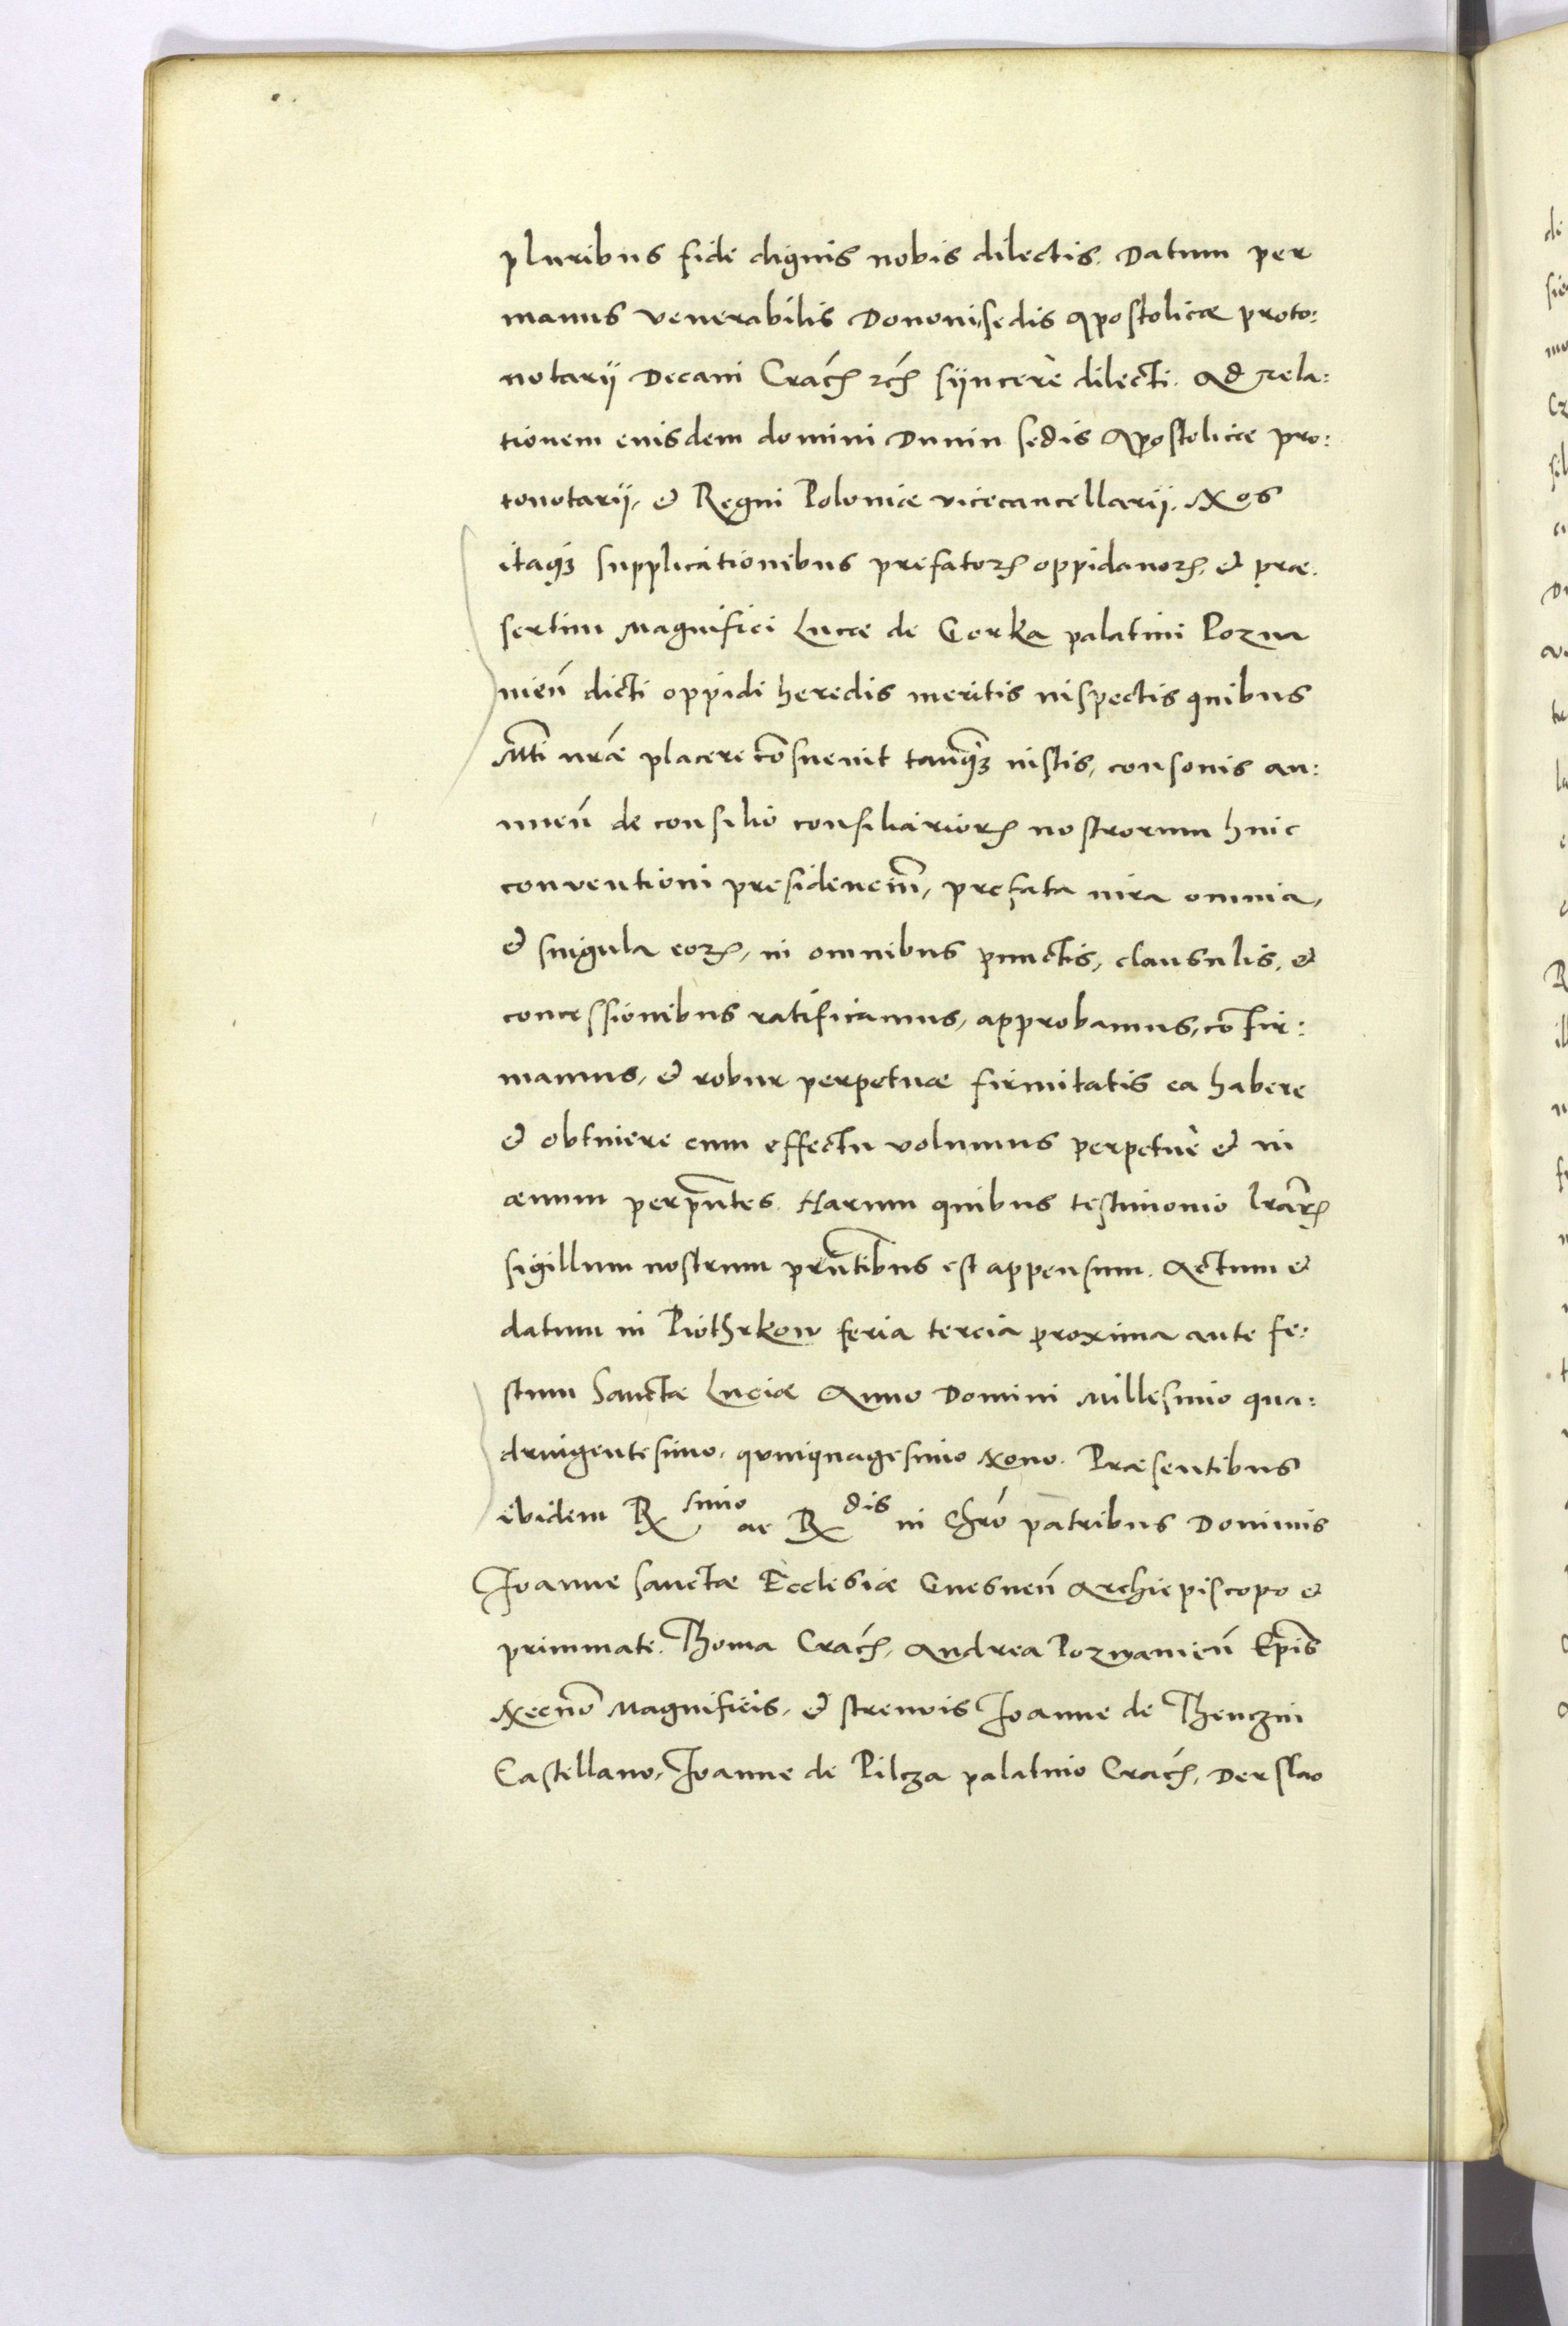 pluribus fide dignis nobis dilectis. Datum per
manus venerabilis Dononi, sedis Apostolicæ proto:
notarij Decani Cracń etc sijncerè dilecti. Ad rela:
tionem eiusdem domini Dunin sedis Apostolicæ pro:
tonotarij, et Regni Poloniæ vicecancellarij. Nos
itaq3 supplicationibus prefatorꝝ oppidanorꝝ, et præ.
sertim Magnifici Lucæ de Gorka palatini Pozna
nień dicti oppidi heredis meritis inspectis quibus
Mti nr̃æ placere cõsuevit tanq̃3 iustis, consonis an:
nueń de consilio consiliariorꝝ nostrorum huic
conventioni presidencm̃, prefata iura omnia,
et singula eorꝝ, in omnibus punctis, clausulis, et
concessionibus ratificamus, approbamus, cõfir:
mamus, et robur perpetuæ firmitatis ea habere
et obtinere cum effectu volumus perpetuè et in
æuum perp̃ntes. Harum quibus testimonio lr̃arꝝ
sigillum nostrum prñtibus est appensum. Actum et
datum in Piothrkow feria tercia proxima ante fe:
stum Sanctæ Luciæ Anno Domini Millesimo qua:
dringentesimo, quinquagesimo Nono. Præsentibus
ibidem R simo ac R dis in Chr̃o patribus Dominis
Joanne sanctæ Ecclesiæ Gnesneń Archiepiscopo et
primmate. Thoma Cracń, Andrea Poznanień Ep̃is
Necnõ Magnificis, et strenuis Joanne de Thenczin
Castellano, Joanne de Pilcza palatino Cracń, Derslao